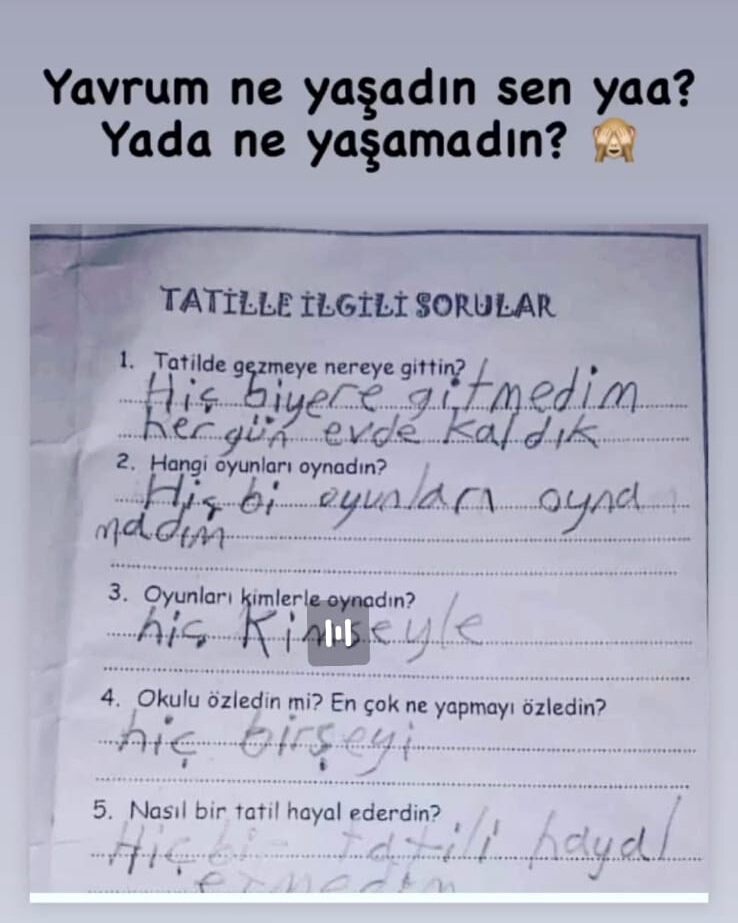 Yavrum ne yaşadın sen yaa?
Yada ne yaşamadın? 🙈
TATİLLE İLGİLİ SORULAR
1. Tatilde gezmeye nereye gittin?
Hiç biyere gitmedim
her gün evde kaldık
2. Hangi oyunları oynadın?
Hiç bi oyunları oyna
madım
3. Oyunları kimlerle oynadın?
hiç Kimseyle
4. Okulu özledin mi? En çok ne yapmayı özledin?
hiç birşeyi
5. Nasıl bir tatil hayal ederdin?
Hiç bir tatili hayal
etmedim